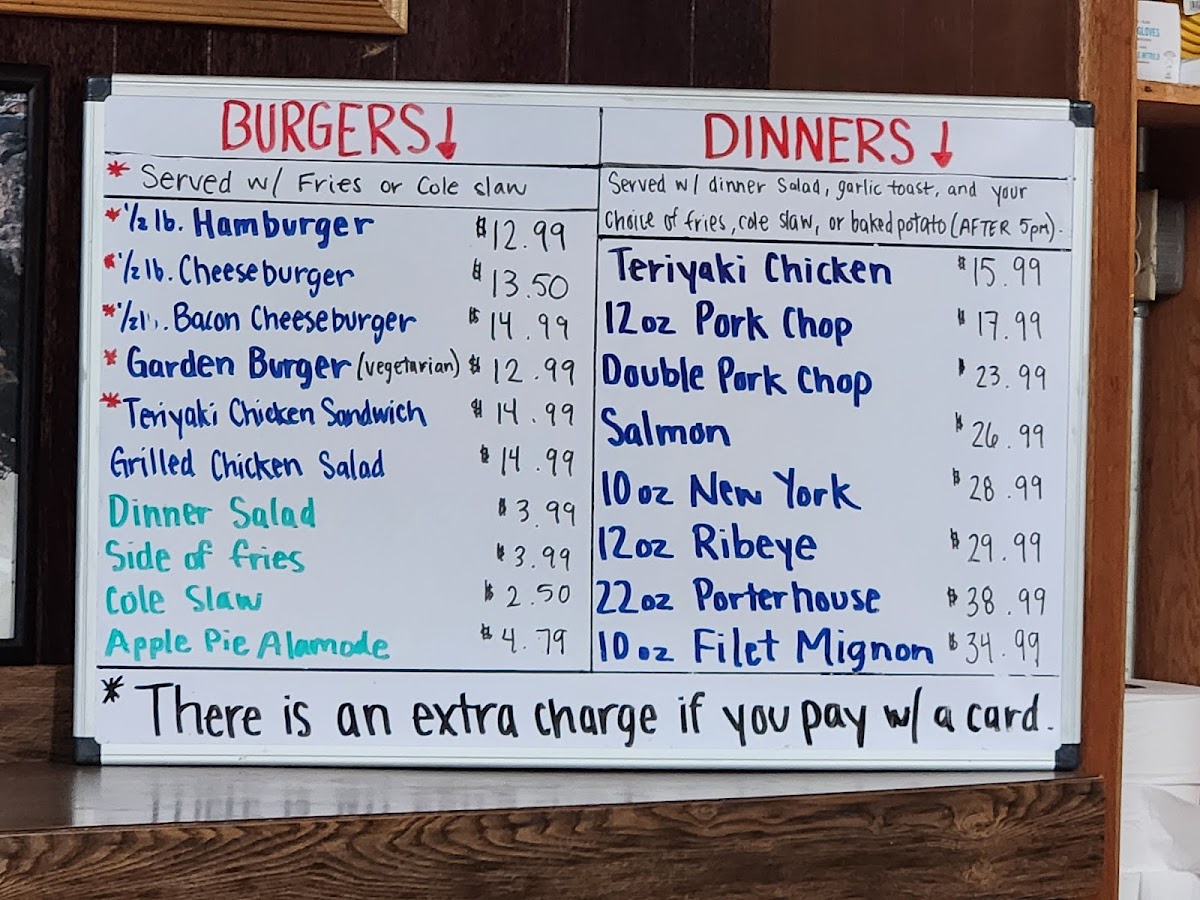 BURGERS↓
* Served w/ Fries or Cole slaw
*1/2 lb. Hamburger $12.99
*1/2 lb. Cheeseburger $13.50
*1/2 l. Bacon Cheeseburger $14.99
* Garden Burger (vegetarian) $12.99
*Teriyaki Chicken Sandwich $14.99
Grilled Chicken Salad $14.99
Dinner Salad $3.99
Side of fries $3.99
Cole Slaw $2.50
Apple Pie Alamode $4.79
DINNERS↓
Served w/ dinner Salad, garlic toast, and your
choice of fries, cole slaw, or baked potato (AFTER 5pm).
Teriyaki Chicken $15.99
12oz Pork Chop $17.99
Double Pork Chop $23.99
Salmon $26.99
10 oz New York $28.99
12oz Ribeye $29.99
22oz Porterhouse $38.99
10 oz Filet Mignon $34.99
* There is an extra charge if you pay w/ a card.
GLOVES